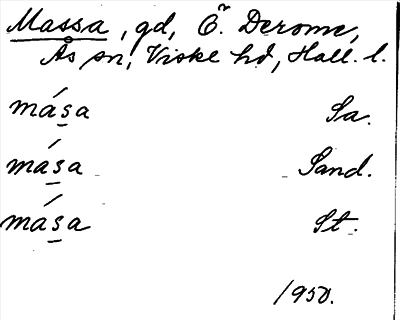 Massa, gd, Ö. Derome,
Ås sn, Viske hd, Hall. l.
mása Sa.
mása Sand.
mása St.
1950.